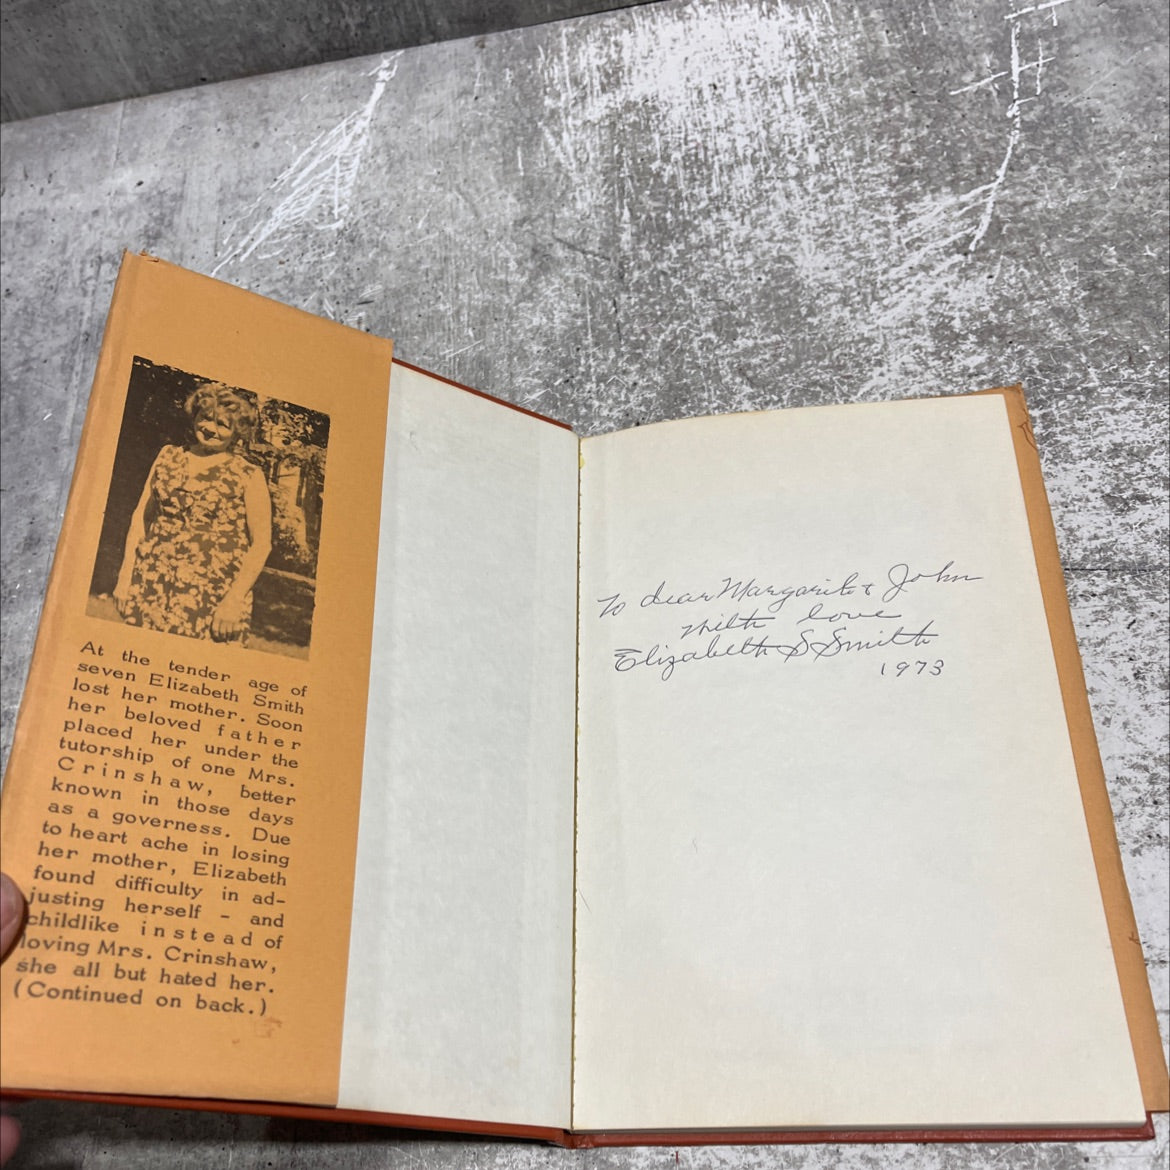 At the tender age of
seven Elizabeth Smith
lost her mother. Soon
her beloved father
placed her under the
tutorship of one Mrs.
Crinshaw, better
known in those days
as a governess. Due
to heart ache in losing
her mother, Elizabeth
found difficulty in ad-
justing herself - and
childlike instead of
loving Mrs. Crinshaw,
she all but hated her.
(Continued on back.)
To dear Margarite & John
with love
Elizabeth S Smith
1973